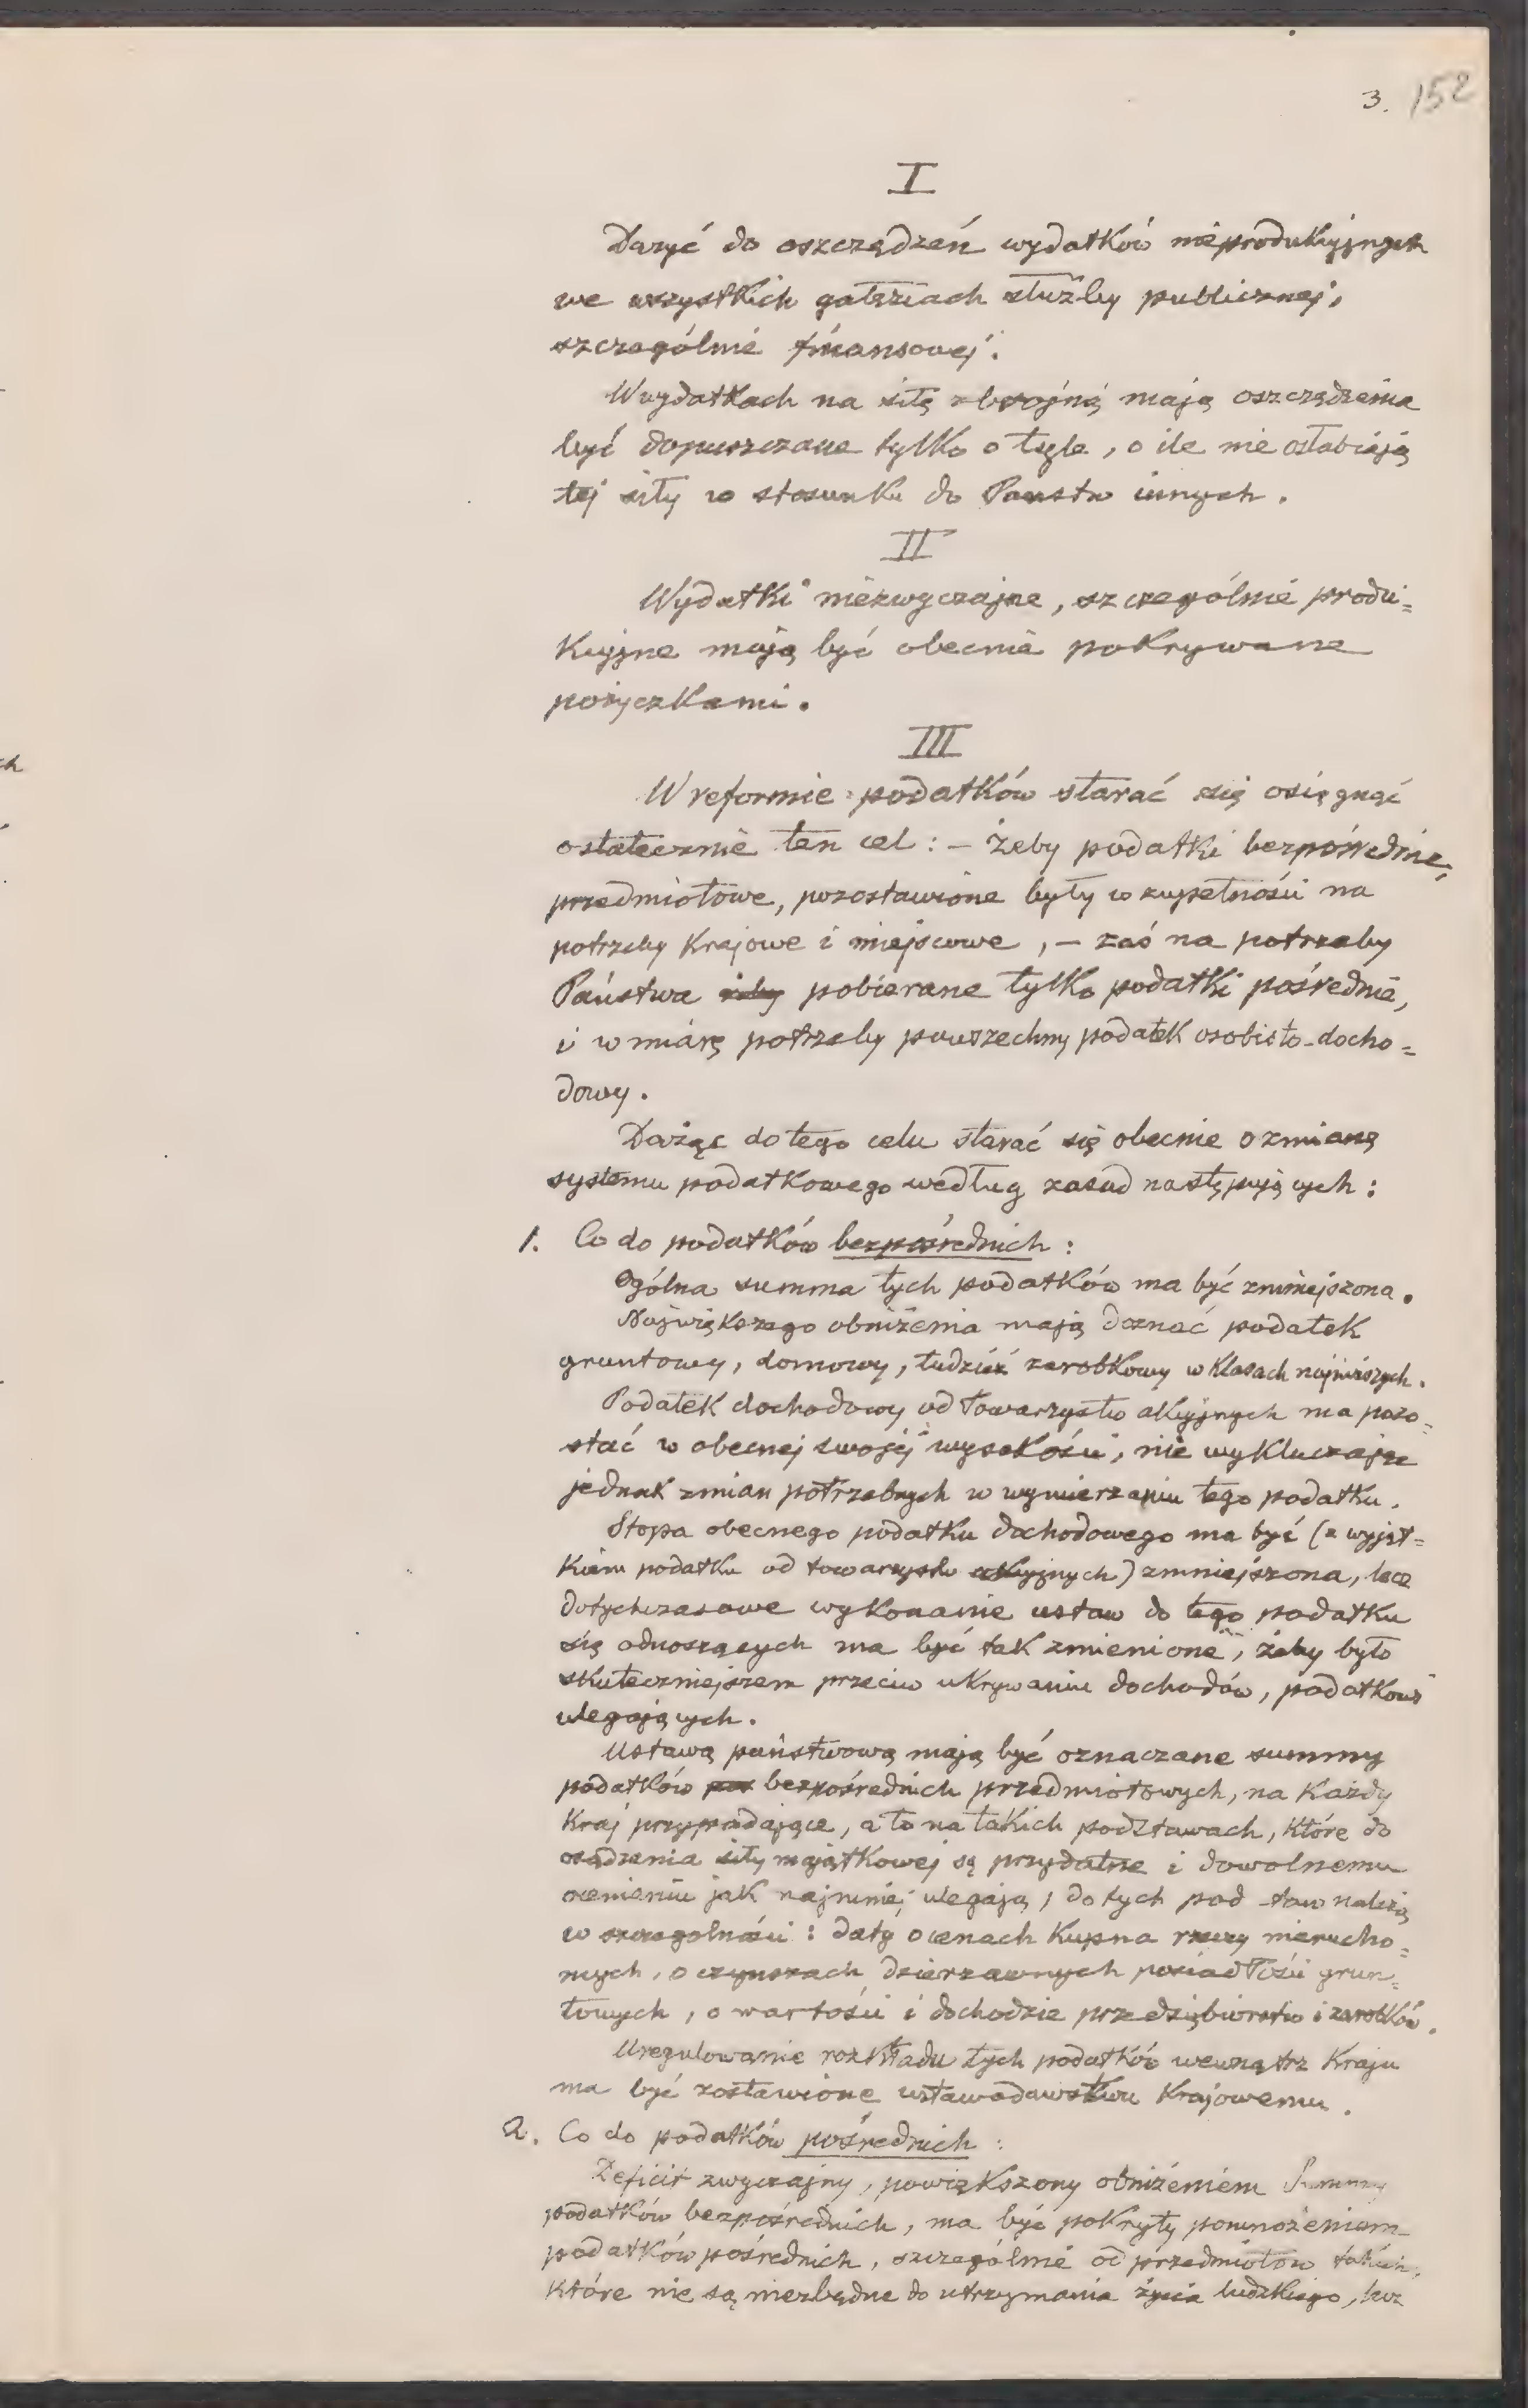 3. 152
I
Dążyć do oszczędzeń wydatków nieprodukcyjnych
we wszystkich gałęziach służby publicznej,
szczególnie finansowej.
W wydatkach na siłę zbrojną mają oszczędzenia
być dopuszczane tylko o tyle, o ile nie osłabiają
tej siły w stosunku do Państw innych.
II
Wydatki niezwyczajne, szczególnie produ=
kcyjne mają być obecnie pokrywane
pożyczkami.
III
W reformie podatków starać się osięgnąć
ostatecznie ten cel: – żeby podatki bezpośrednie,
przedmiotowe, pozostawione były w zupełności na
potrzeby krajowe i miejscowe, – zaś na potrzeby
Państwa żeby pobierane tylko podatki pośrednie,
i w miarę potrzeby powszechny podatek osobisto-docho=
dowy.
Dążąc do tego celu starać się obecnie o zmianę
systemu podatkowego według zasad następujących:
1. Co do podatków bezpośrednich:
Ogólna summa tych podatków ma być zmniejszona.
Największego obniżenia mają doznać podatek
gruntowy, domowy, tudzież zarobkowy w klasach najniższych.
Podatek dochodowy od towarzystw akcyjnych ma pozo=
stać w obecnej swojej wysokości, nie wykluczając
jednak zmian potrzebnych w wymierzaniu tego podatku.
Stopa obecnego podatku dochodowego ma być (z wyjąt=
kiem podatku od towarzystw akcyjnych) zmniejszona, lecz
dotychczasowe wykonanie ustaw do tego podatku
się odnoszących ma być tak zmienione, żeby było
skuteczniejszem przeciw ukrywaniu dochodów, podatkowi
ulegających.
Ustawą państwową mają być oznaczane summy
podatków bezpośrednich przedmiotowych, na każdy
kraj przypadające, a to na takich podstawach, które do
osądzenia siły majątkowej są przydatne i dowolnemu
ocenieniu jak najmniej ulegają; do tych pod staw należą
w szczególności: daty o cenach kupna rzeczy nierucho=
mych, o czynszach dzierżawnych posiadłości grun=
towych, o wartości i dochodzie przedsiębiorstw i zarobków.
Uregulowanie rozkładu tych podatków wewnątrz kraju
ma być zostawione ustawodawstwu krajowemu.
2. Co do podatków pośrednich:
Deficit zwyczajny, powiększony obniżeniem Summy
podatków bezpośrednich, ma być pokryty pomnożeniem
podatków pośrednich, szczególnie od przedmiotów takich,
które nie są niezbędne do utrzymania życia ludzkiego, lecz